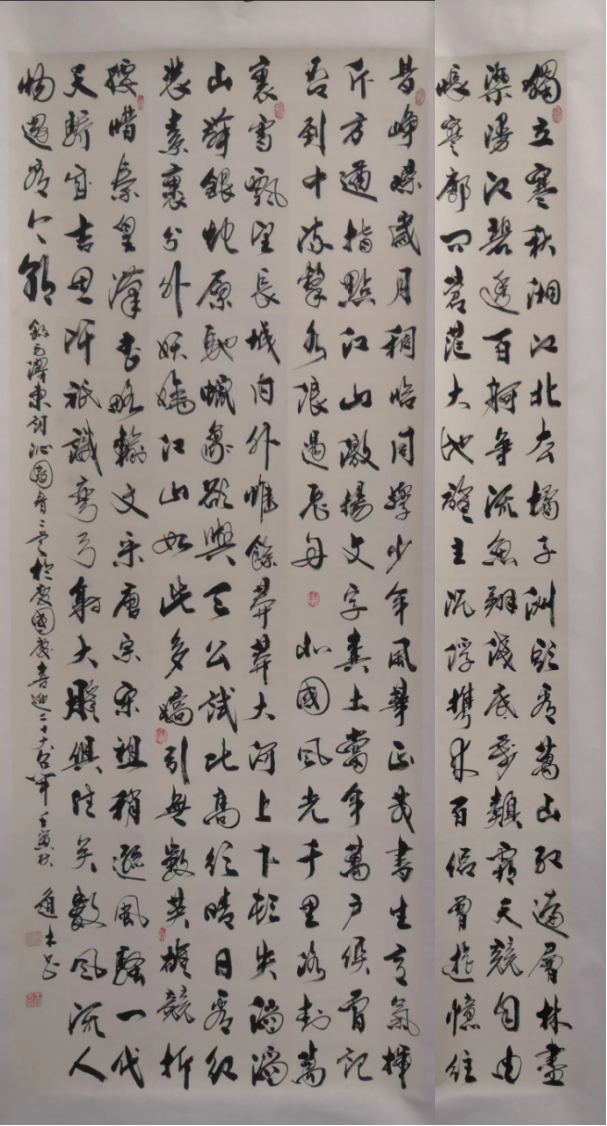 獨立寒秋湘江北去橘子洲頭看萬山紅遍層林盡
染漫江碧透百舸爭流魚翔淺底萬類霜天競自由
悵寥廓問蒼茫大地誰主沉浮攜來百侶曾遊憶往
昔崢嶸歲月稠恰同學少年風華正茂書生意氣揮
斥方遒指點江山激揚文字糞土當年萬戶侯曾記
否到中流擊水浪遏飛舟 北國風光千里冰封萬
裏雪飄望長城內外惟餘莽莽大河上下頓失滔滔
山舞銀蛇原馳蠟象欲與天公試比高須晴日看紅
裝素裹分外妖嬈江山如此多嬌引無數英雄競折
腰惜秦皇漢武略輸文采唐宗宋祖稍遜風騷一代
天驕成吉思汗祇識彎弓射大雕俱往矣數風流人
物還看今朝 錄毛澤東詞沁園春二首於慶國慶喜迎二十大召開 壬寅秋